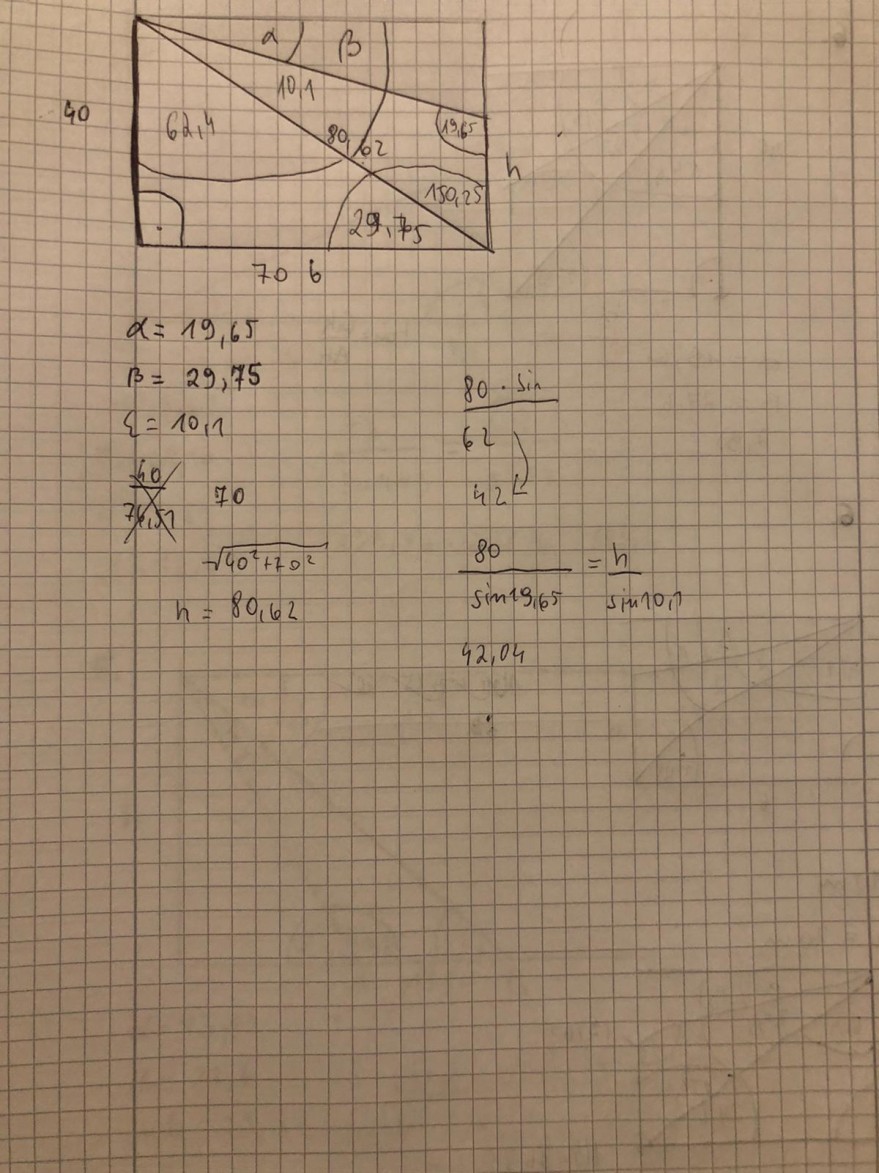 α β
10,1
40
62,4
80,62
19,65
h
150,25
29,75
70 b
α = 19,65
β = 29,75
ε = 10,1
70
√40²+70²
h = 80,62
80 · sin
62
42
80 = h
sin19,65 sin10,1
42,04